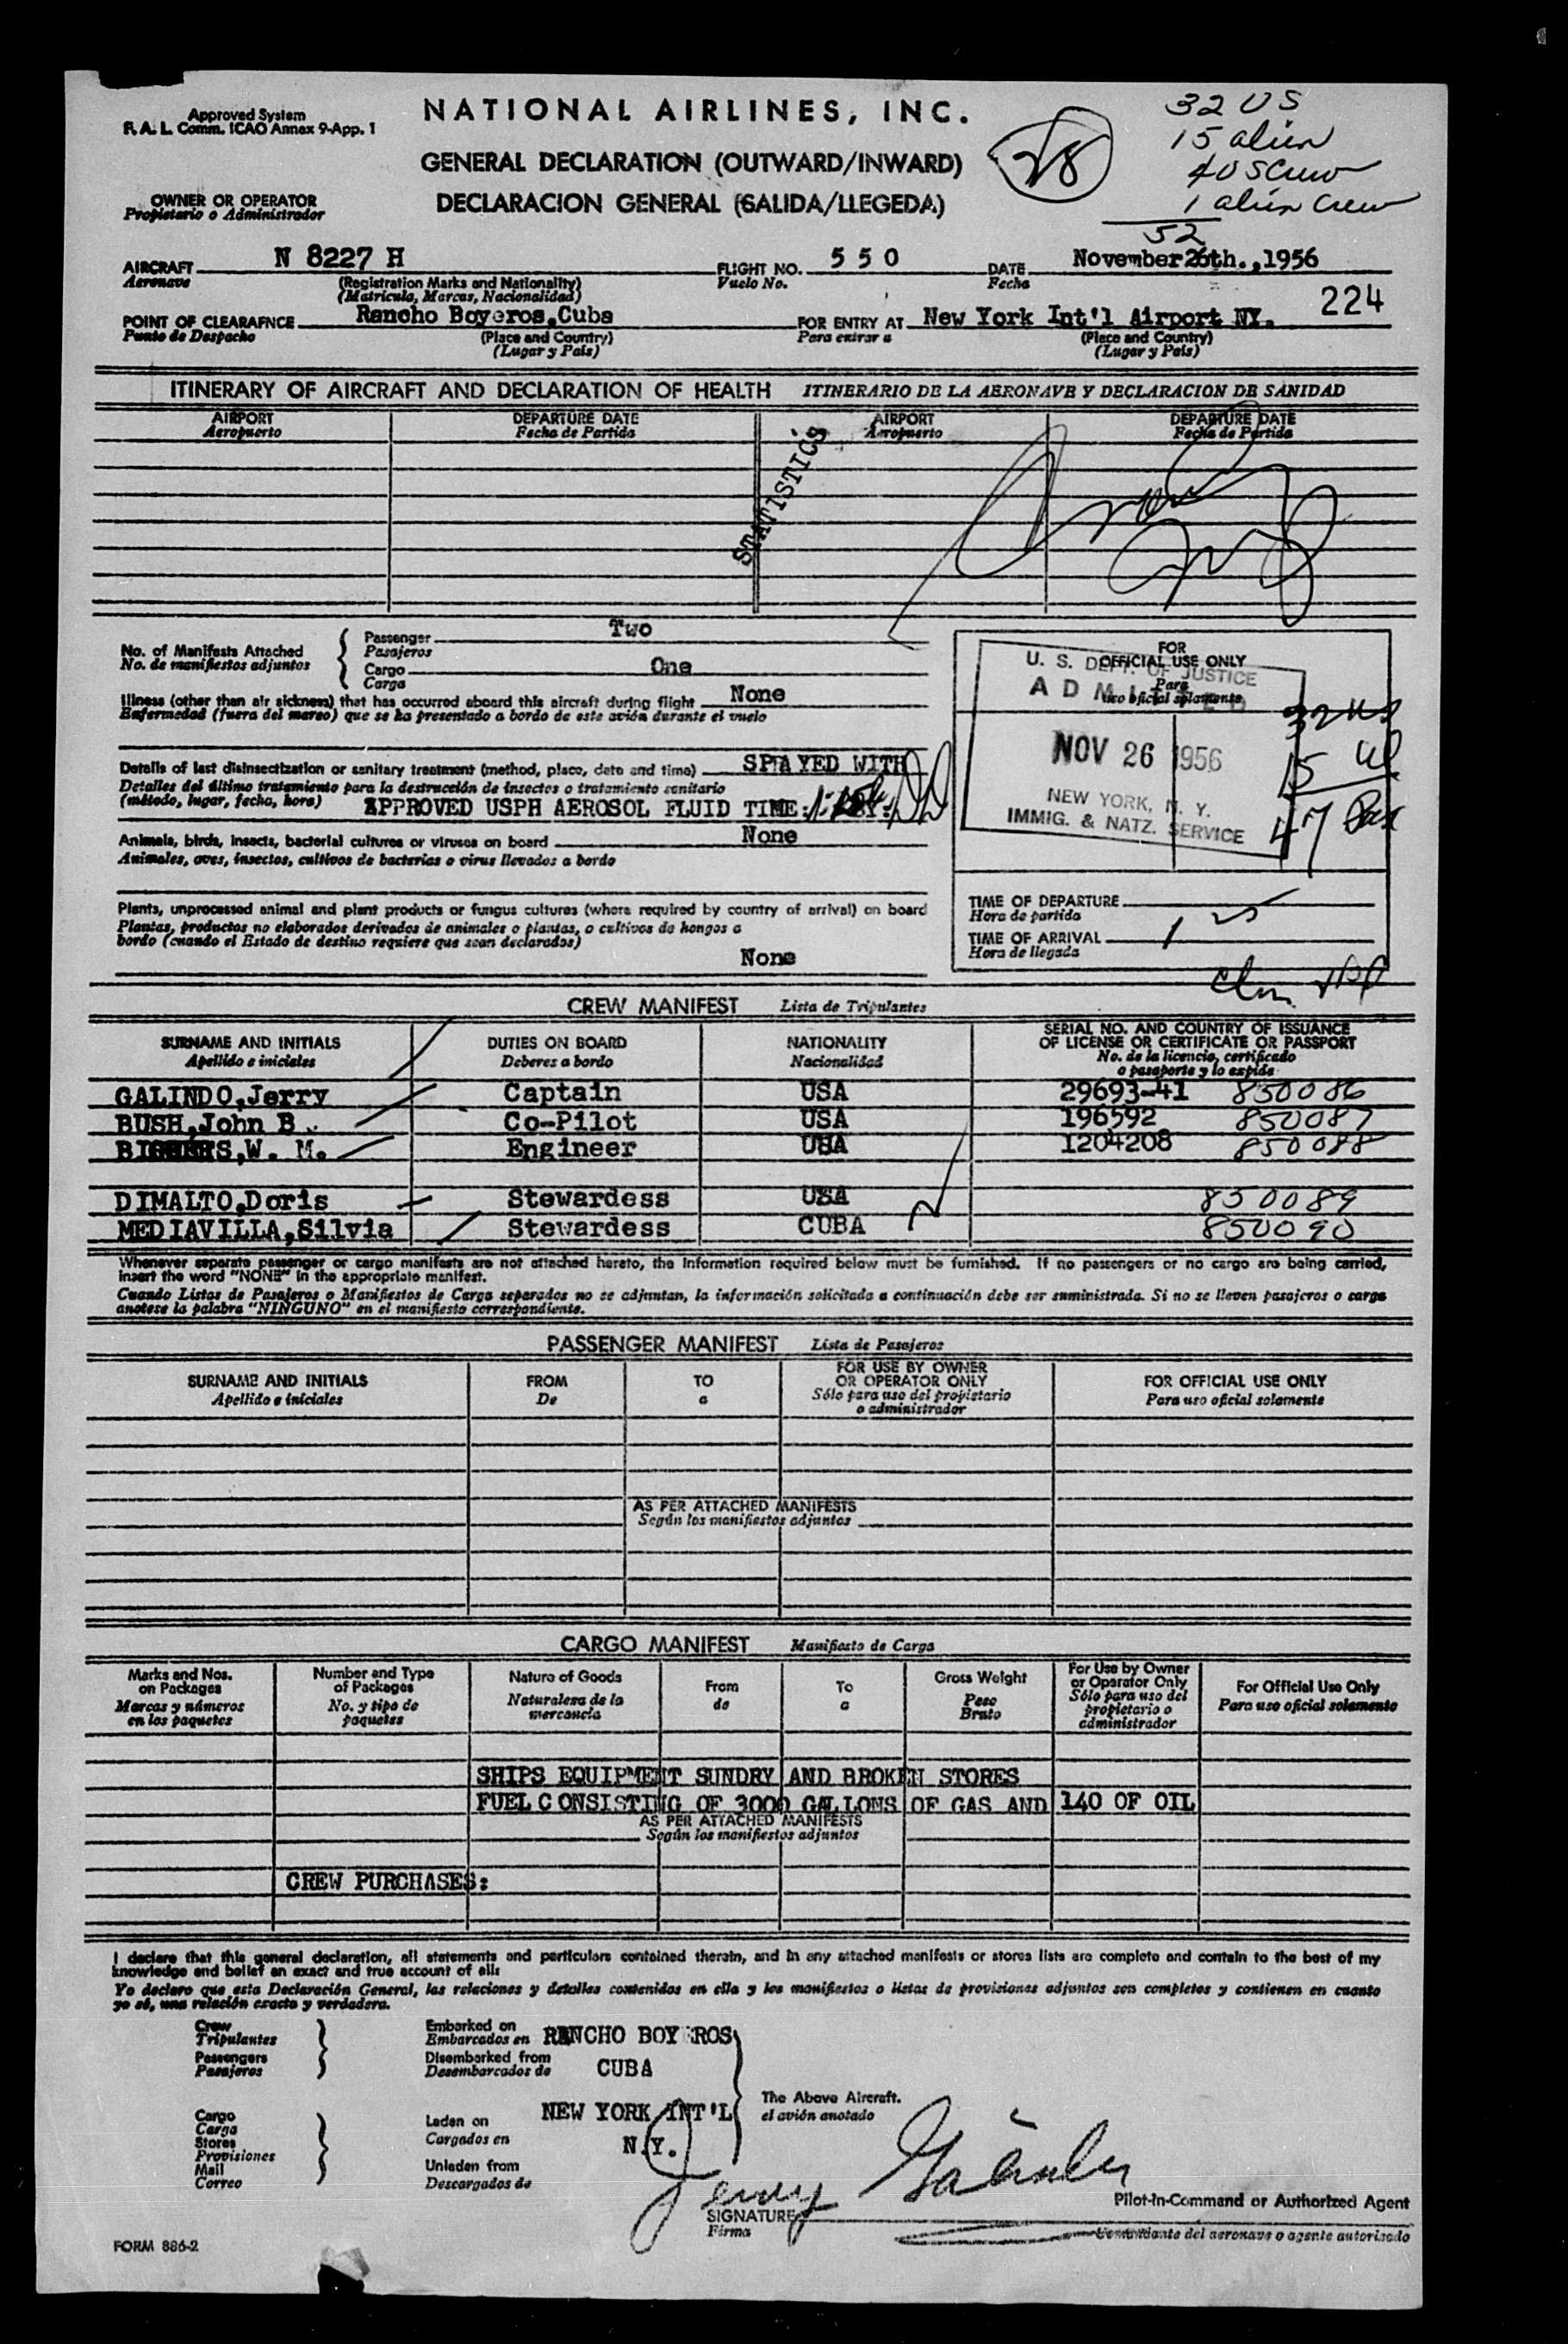 Approved System
F. A. L. Comm. ICAO Annex 9-App. 1
NATIONAL AIRLINES, INC.
GENERAL DECLARATION (OUTWARD/INWARD)
DECLARACION GENERAL (SALIDA/LLEGEDA)
OWNER OR OPERATOR
Propietario o Administrador
28
32 US
15 alien
4 US Crew
1 alien Crew
52
AIRCRAFT N 8227 H FLIGHT NO. 5 5 0 DATE November 26th.,1956
Aeronave (Registration Marks and Nationality) Vuelo No. Fecha
(Matricula, Marcas, Nacionalidad)
224
POINT OF CLEARAFNCE Rancho Boyeros,Cuba FOR ENTRY AT New York Int'l Airport NY.
Punto de Despacho (Place and Country) Para entrar a (Place and Country)
(Lugar y País) (Lugar y País)
ITINERARY OF AIRCRAFT AND DECLARATION OF HEALTH ITINERARIO DE LA AERONAVE Y DECLARACION DE SANIDAD
AIRPORT DEPARTURE DATE AIRPORT DEPARTURE DATE
Aeropuerto Fecha de Partida Aeropuerto Fecha de Partida
STATISTICS
No. of Manifests Attached
No. de manifiestos adjuntos
Passenger Two
Pasajeros
Cargo One
Carga
Illness (other than air sickness) that has occurred aboard this aircraft during flight None
Enfermedad (fuera del mareo) que se ha presentado a bordo de este avión durante el vuelo
Details of last disinsectization or sanitary treatment (method, place, date and time) SPRAYED WITH
Detalles del último tratamiento para la destrucción de insectos o tratamiento sanitario
(método, lugar, fecha, hora) APPROVED USPH AEROSOL FLUID TIME: BY:
Animals, birds, insects, bacterial cultures or viruses on board None
Animales, aves, insectos, cultivos de bacterias o virus llevados a bordo
Plants, unprocessed animal and plant products or fungus cultures (where required by country of arrival) on board
Plantas, productos no elaborados derivados de animales o plantas, o cultivos de hongos a
bordo (cuando el Estado de destino requiere que sean declarados)
None
FOR
OFFICIAL USE ONLY
Para
uso oficial solamente
U. S. DEPT. OF JUSTICE
ADMITTED
NOV 26 1956
NEW YORK, N. Y.
IMMIG. & NATZ. SERVICE
32 us
15
47 Pax
TIME OF DEPARTURE
Hora de partida
TIME OF ARRIVAL
Hora de llegada
CREW MANIFEST Lista de Tripulantes
SURNAME AND INITIALS DUTIES ON BOARD NATIONALITY SERIAL NO. AND COUNTRY OF ISSUANCE
OF LICENSE OR CERTIFICATE OR PASSPORT
Apellido e iniciales Deberes a bordo Nacionalidad No. de la licencia, certificado
o pasaporte y lo expide
GALINDO,Jerry Captain USA 29693-41 850086
BUSH,John B. Co-Pilot USA 196592 850087
W. M. Engineer USA 1204208 850088
DIMALTO,Doris Stewardess USA 850089
MEDIAVILLA,Silvia Stewardess CUBA 850090
Whenever separate passenger or cargo manifests are not attached hereto, the information required below must be furnished. If no passengers or no cargo are being carried,
insert the word "NONE" in the appropriate manifest.
Cuando Listas de Pasajeros o Manifiestos de Carga separados no se adjuntan, la información solicitada a continuación debe ser suministrada. Si no se lleven pasajeros o carga
anotese la palabra "NINGUNO" en el manifiesto correspondiente.
PASSENGER MANIFEST Lista de Pasajeros
SURNAME AND INITIALS FROM TO FOR USE BY OWNER OR OPERATOR ONLY FOR OFFICIAL USE ONLY
Apellido e iniciales De a Sólo para uso del propietario o administrador Para uso oficial solamente
AS PER ATTACHED MANIFESTS
Según los manifiestos adjuntos
CARGO MANIFEST Manifiesto de Carga
Marks and Nos. on Packages Number and Type of Packages Nature of Goods From To Gross Weight For Use by Owner or Operator Only For Official Use Only
Marcas y números en los paquetes No. y tipo de paquetes Naturalesa de la mercancia de a Peso Bruto Sólo para uso del propietario o administrador Para uso oficial solamente
SHIPS EQUIPMENT SUNDRY AND BROKEN STORES
FUEL CONSISTING OF 3000 GALLONS OF GAS AND 140 OF OIL
AS PER ATTACHED MANIFESTS
Según los manifiestos adjuntos
CREW PURCHASES:
I declare that this general declaration, all statements and particulars contained therein, and in any attached manifests or stores lists are complete and contain to the best of my
knowledge and belief an exact and true account of all:
Yo declaro que esta Declaración General, las relaciones y detalles contenidos en ella y los manifiestos o listas de provisiones adjuntos son completos y contienen en cuanto
yo sé, una relación exacta y verdadera.
Crew Embarked on
Tripulantes Embarcados en RANCHO BOYEROS
Passengers Disembarked from
Pasajeros Desembarcados de CUBA
The Above Aircraft.
el avión anotado
Cargo
Carga
Stores
Provisiones
Mail
Correo
Laden on NEW YORK INT'L
Cargados en N.Y.
Unladen from
Descargados de
Jerry Galindo
SIGNATURE
Firma
Pilot-in-Command or Authorized Agent
Comandante del aeronave o agente autorizado
FORM 886-2